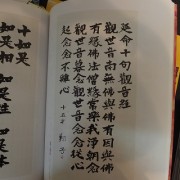 延命十句觀音經
觀世音南無佛與佛有因與佛
有緣佛法僧緣常樂我淨朝念
觀世音暮念觀世音念念從心
起念念不離心
十如是
如是相 如是性